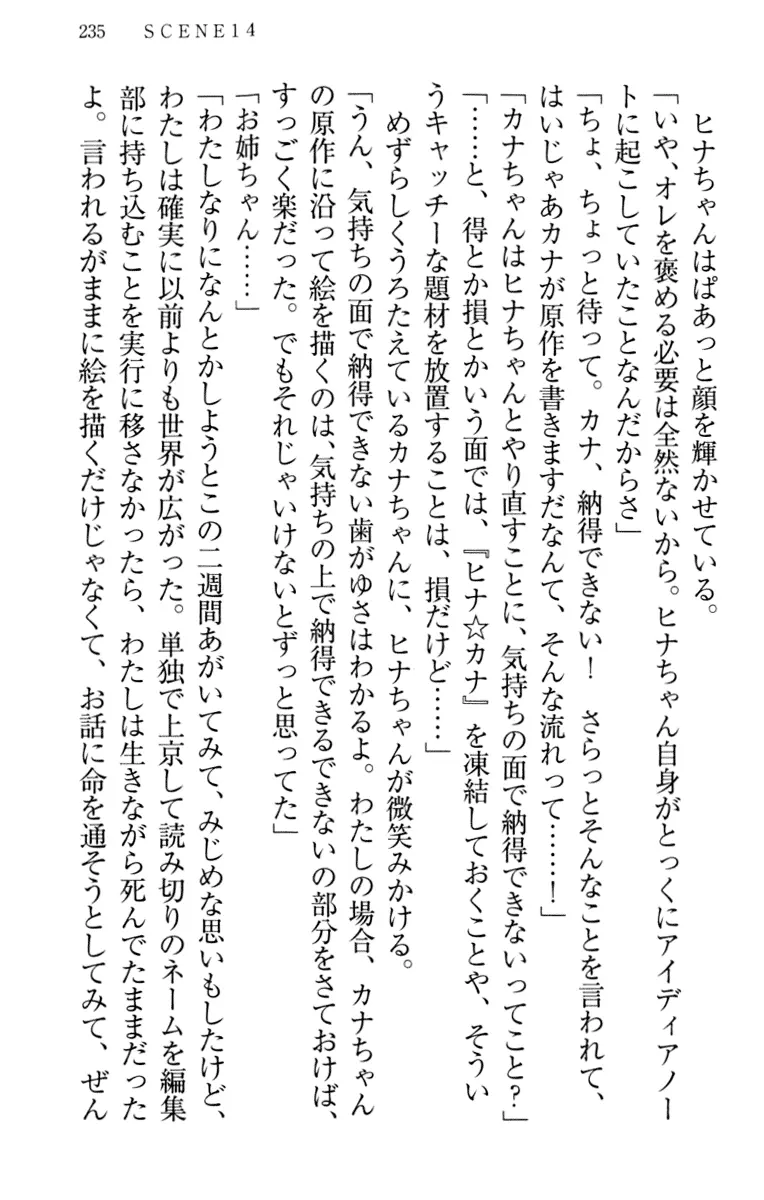 235　SCENE14
　ヒナちゃんはぱあっと顔を輝かせている。
「いや、オレを褒める必要は全然ないから。ヒナちゃん自身がとっくにアイディアノー
トに起こしていたことなんだからさ」
「ちょ、ちょっと待って。カナ、納得できない！　さらっとそんなことを言われて、
はいじゃあカナが原作を書きますだなんて、そんな流れって……！」
「カナちゃんはヒナちゃんとやり直すことに、気持ちの面で納得できないってこと？」
「……と、得とか損とかいう面では、『ヒナ☆カナ』を凍結しておくことや、そうい
うキャッチーな題材を放置することは、損だけど……」
　めずらしくうろたえているカナちゃんに、ヒナちゃんが微笑みかける。
「うん、気持ちの面で納得できない歯がゆさはわかるよ。わたしの場合、カナちゃん
の原作に沿って絵を描くのは、気持ちの上で納得できるできないの部分をさておけば、
すっごく楽だった。でもそれじゃいけないとずっと思ってた」
「お姉ちゃん……」
「わたしなりになんとかしようとこの二週間あがいてみて、みじめな思いもしたけど、
わたしは確実に以前よりも世界が広がった。単独で上京して読み切りのネームを編集
部に持ち込むことを実行に移さなかったら、わたしは生きながら死んでたままだった
よ。言われるがままに絵を描くだけじゃなくて、お話に命を通そうとしてみて、ぜん